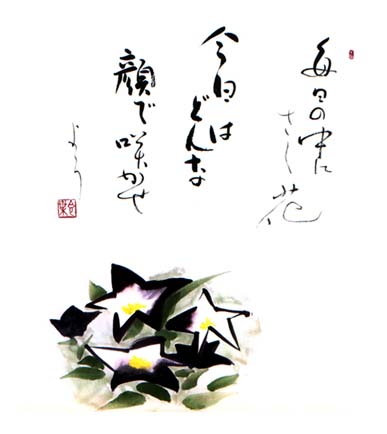 毎日の中に
さく花
今日は
どんな
顔で咲かせ